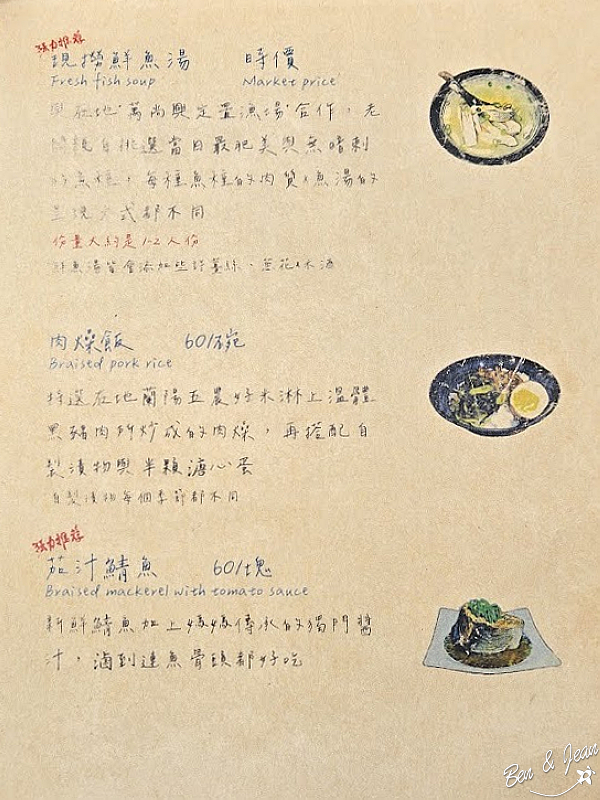 強力推荐
現撈鮮魚湯 時價
Fresh fish soup Market price
與在地"萬尚興定置漁場"合作，老
闆親自挑選當日最肥美與無暗刺
的魚種，每種魚種的肉質、魚湯的
呈現方式都不同
份量大約是1-2人份
鮮魚湯皆會添加些許薑絲、蔥花、米酒
肉燥飯 60/碗
Braised pork rice
特選在地蘭陽五農好米淋上溫體
黑豬肉所炒成的肉燥，再搭配自
製漬物與半顆溏心蛋
自製漬物每個季節都不同
強力推荐
茄汁鯖魚 60/塊
Braised mackerel with tomato sauce
新鮮鯖魚加上媽媽傳承的獨門醬
汁，滷到連魚骨頭都好吃
Ben & Jean